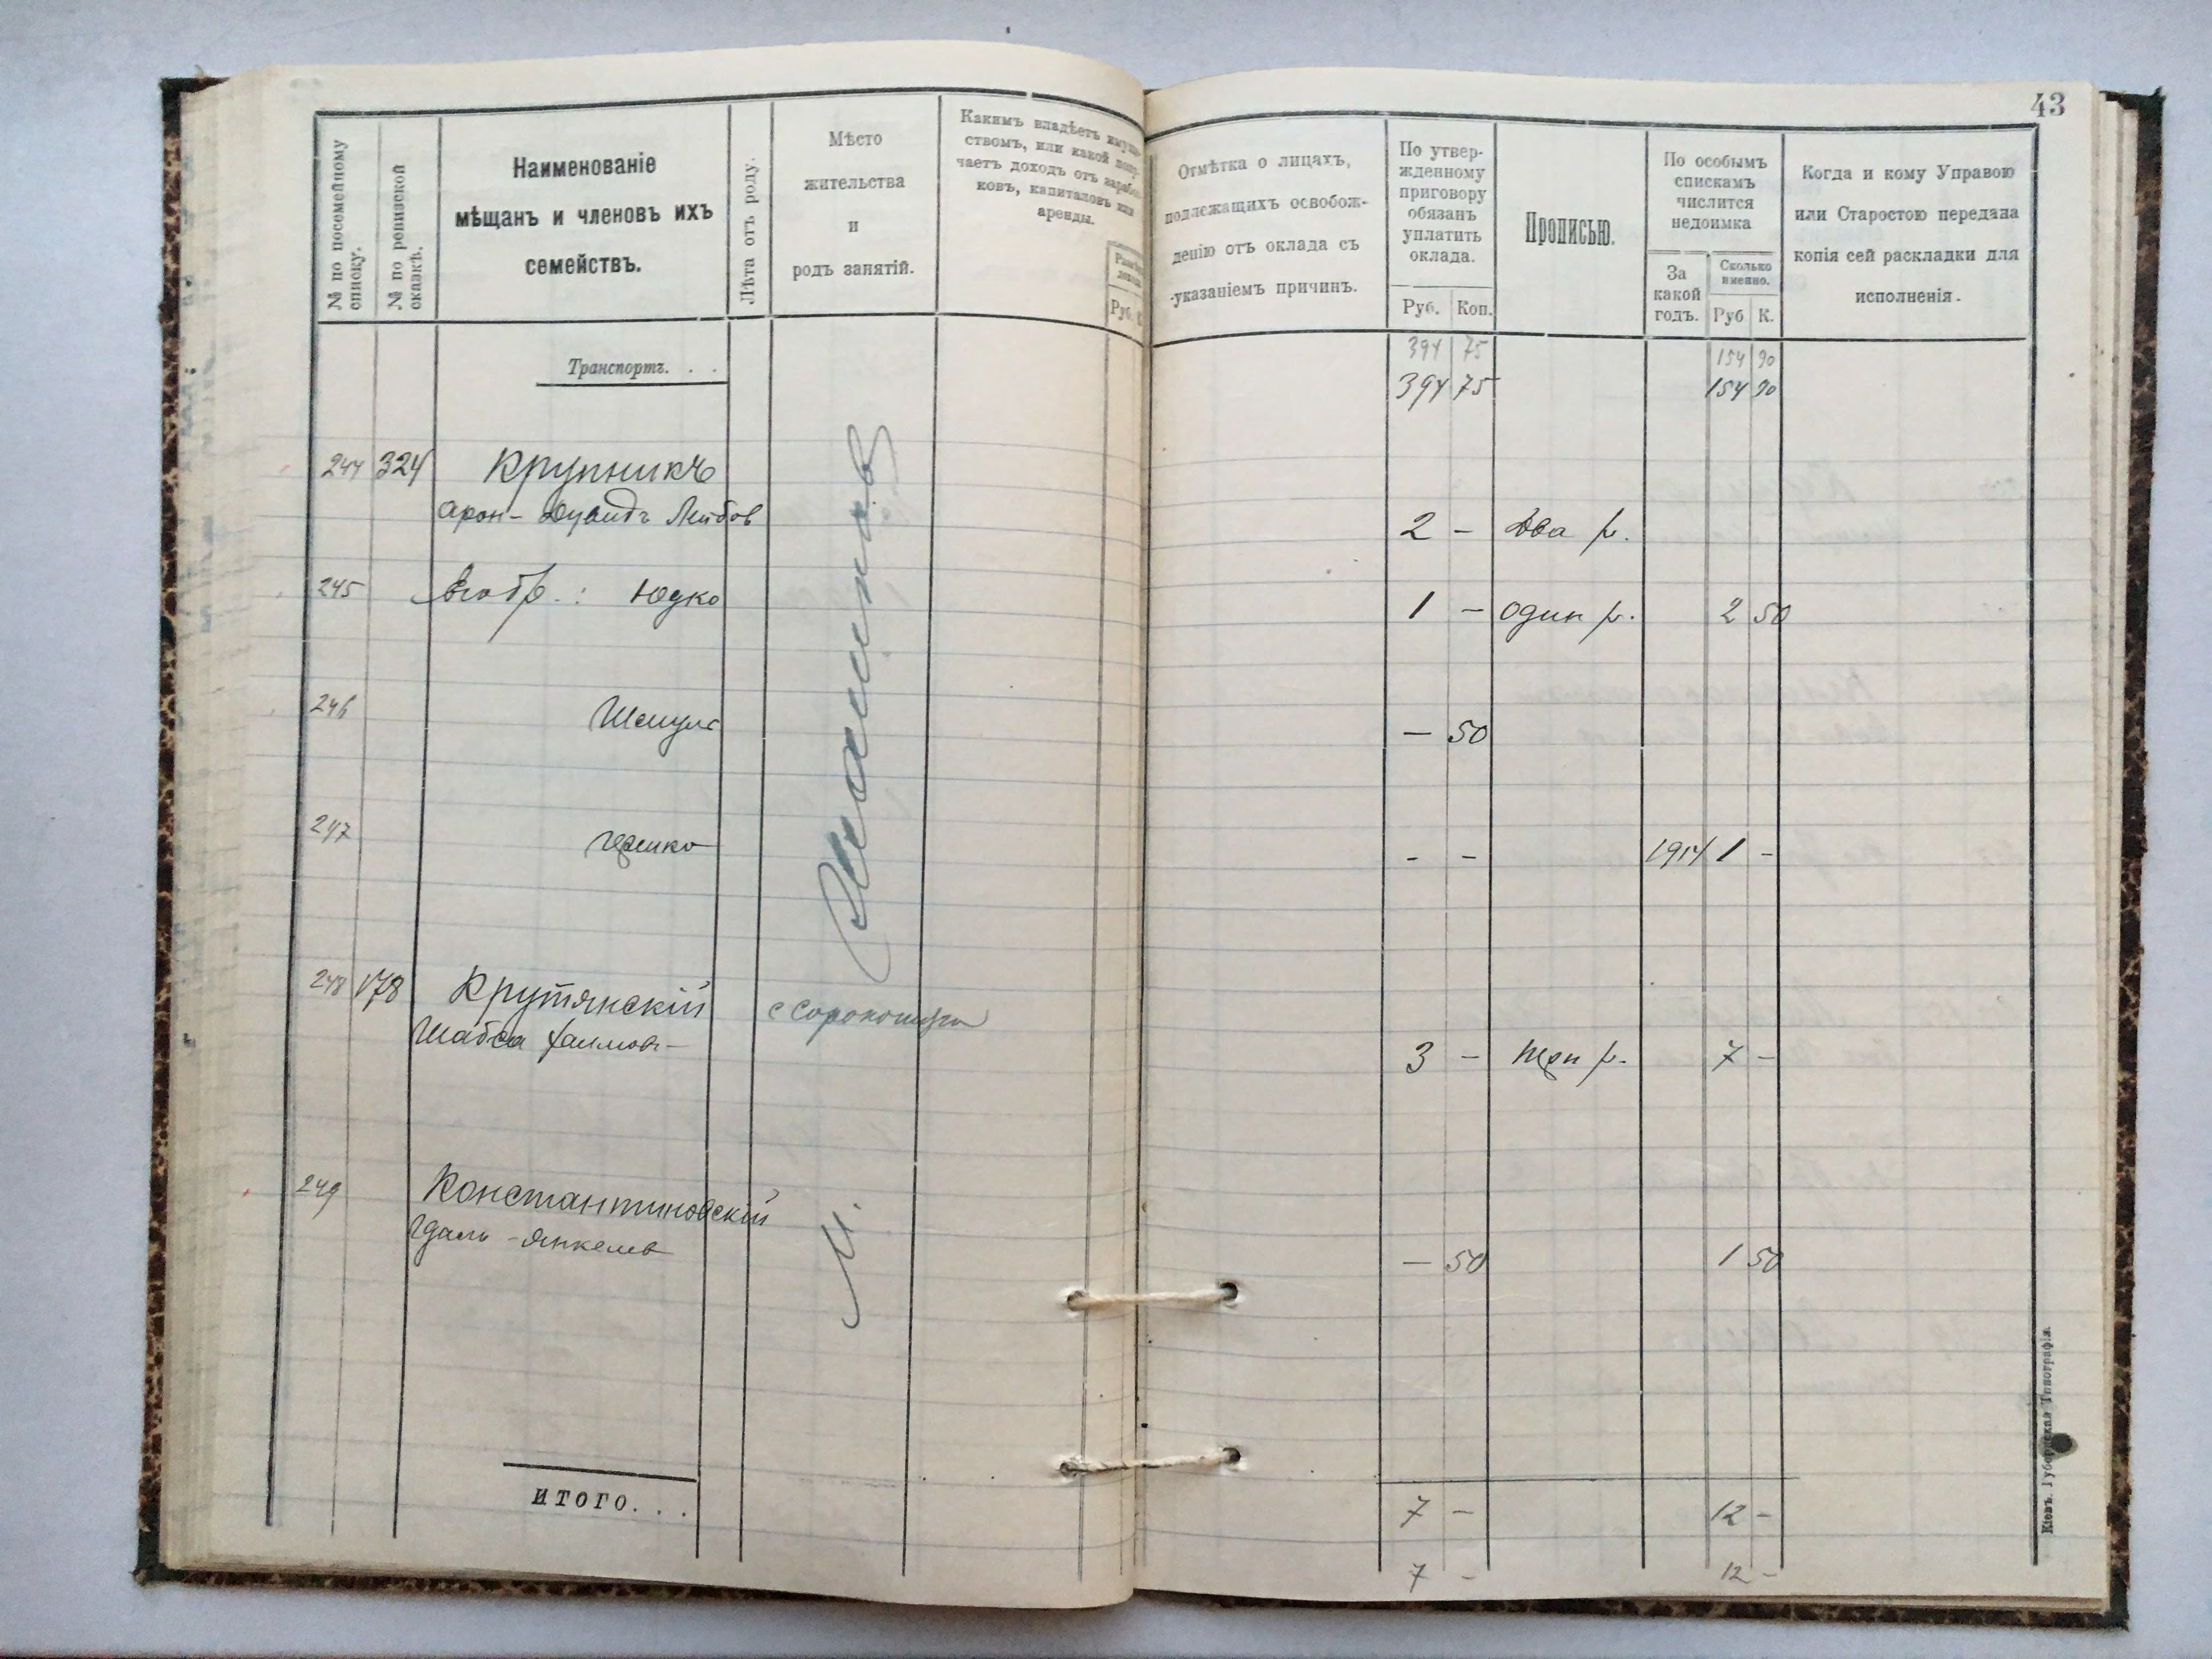 43
№ по посемейному списку.
№ по ревизской сказкѣ.
Наименованіе
мѣщанъ и членовъ ихъ
семействъ.
Лѣта отъ роду.
Мѣсто
жительства
и
родъ занятій.
Какимъ владѣетъ имуще-
ствомъ, или какой полу-
чаетъ доходъ отъ заработ-
ковъ, капиталовъ или
аренды.
Руб.
Отмѣтка о лицахъ,
подлежащихъ освобож-
денію отъ оклада съ
указаніемъ причинъ.
По утвер-
жденному
приговору
обязанъ
уплатить
оклада.
Руб. Коп.
Прописью.
По особымъ
спискамъ
числится
недоимка
За
какой
годъ.
Сколько
именно.
Руб К.
Когда и кому Управою
или Старостою передана
копія сей раскладки для
исполненія.
394 75 154 90
Транспортъ. . . 394 75 154 90
244 324 Крупникъ
Арон-Дувидъ Лейбов 2 - Два р.
245 Юдко 1 - Один р. 2 50
246 Шмуль — 50
247 Ицико - - 1914 1 -
248 178 Крутянскій
Шабса Хаимов- 3 - Три р. 7 -
249 Константиновскій
Гдаль-Янкелев — 50 1 50
М.
ИТОГО. . . 7 - 12 -
7 - 12 -
Кіевъ. Губернская Типографія.